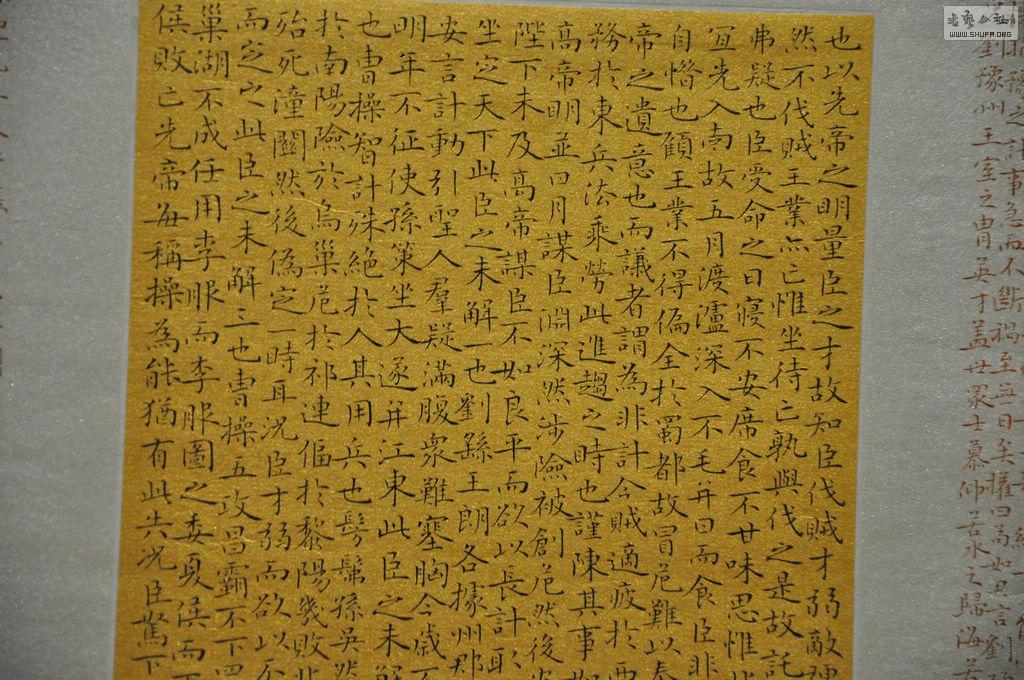 豫之計事急而不斷禍至無日矣權曰苟如君言劉
劉豫州王室之冑英才蓋世衆士慕仰若水之歸海若
也以先帝之明量臣之才故知臣伐賊才弱敵
然不伐賊王業亦亡惟坐待亡孰與伐之是故託
弗疑也臣受命之日寢不安席食不甘味思惟
宜先入南故五月渡瀘深入不毛并日而食臣非
自惜也顧王業不得偏全於蜀都故冒危難以奉
帝之遺意也而議者謂為非計今賊適疲於西
務於東兵法乘勞此進趨之時也謹陳其事如
高帝明並日月謀臣淵深然涉險被創危然後
陛下未及高帝謀臣不如良平而欲以長計取
坐定天下此臣之未解一也劉繇王朗各據州郡
安言計動引聖人羣疑滿腹衆難塞胸今歲不
明年不征使孫策坐大遂并江東此臣之未解
也曹操智計殊絕於人其用兵也髣髴孫吳然
於南陽險於烏巢危於祁連偪於黎陽幾敗
殆死潼關然後偽定一時耳況臣才弱而欲以不
而定之此臣之未解三也曹操五攻昌霸不下四
巢湖不成任用李服而李服圖之委夏侯而
侯敗亡先帝每稱操為能猶有此失況臣駑下
書藝公社
WWW.SHUFA.ORG